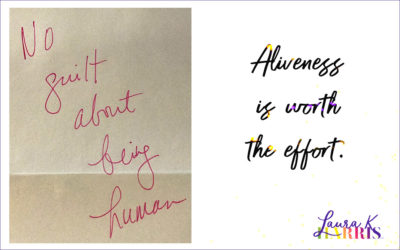 No
guilt
about
being
human
Aliveness
is worth
the effort.
Laura K.
HARRIS